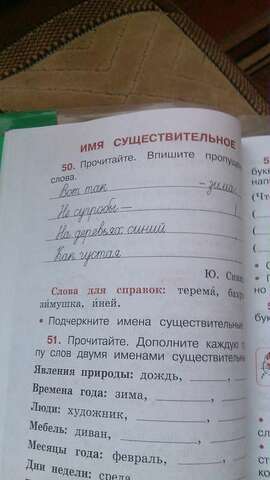 ИМЯ СУЩЕСТВИТЕЛЬНОЕ
50. Прочитайте. Впишите
слова.
Вот так - зима
Не сугробы — !
На деревьях синий
Как густая
Ю.
Слова для справок: терема,
зимушка, иней.
• Подчеркните имена существительные
51. Прочитайте. Дополните каждую
пу слов двумя именами
Явления природы: дождь,
Времена года: зима,
Люди: художник,
Мебель: диван,
Месяцы года: февраль,
Дни недели: среда